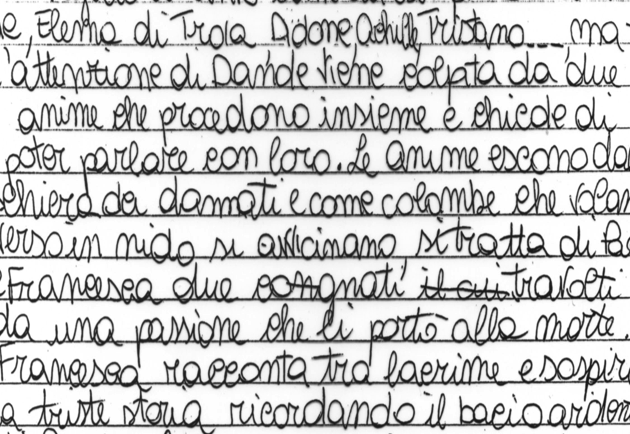 e, Elena di Troia Adone, Achille, Tristano... ma
l'attenzione di Dante viene colpita da due
anime che procedono insieme e chiede di
poter parlare con loro. Le anime escono da
schiera dei dannati e come colombe che volan
verso in nido si avvicinano, si tratta di
Francesca due congnati il cui travolti
da una passione che li portò alla morte.
Francesca racconta tra lacrime e sospiri
a triste storia ricordando il bacio arden